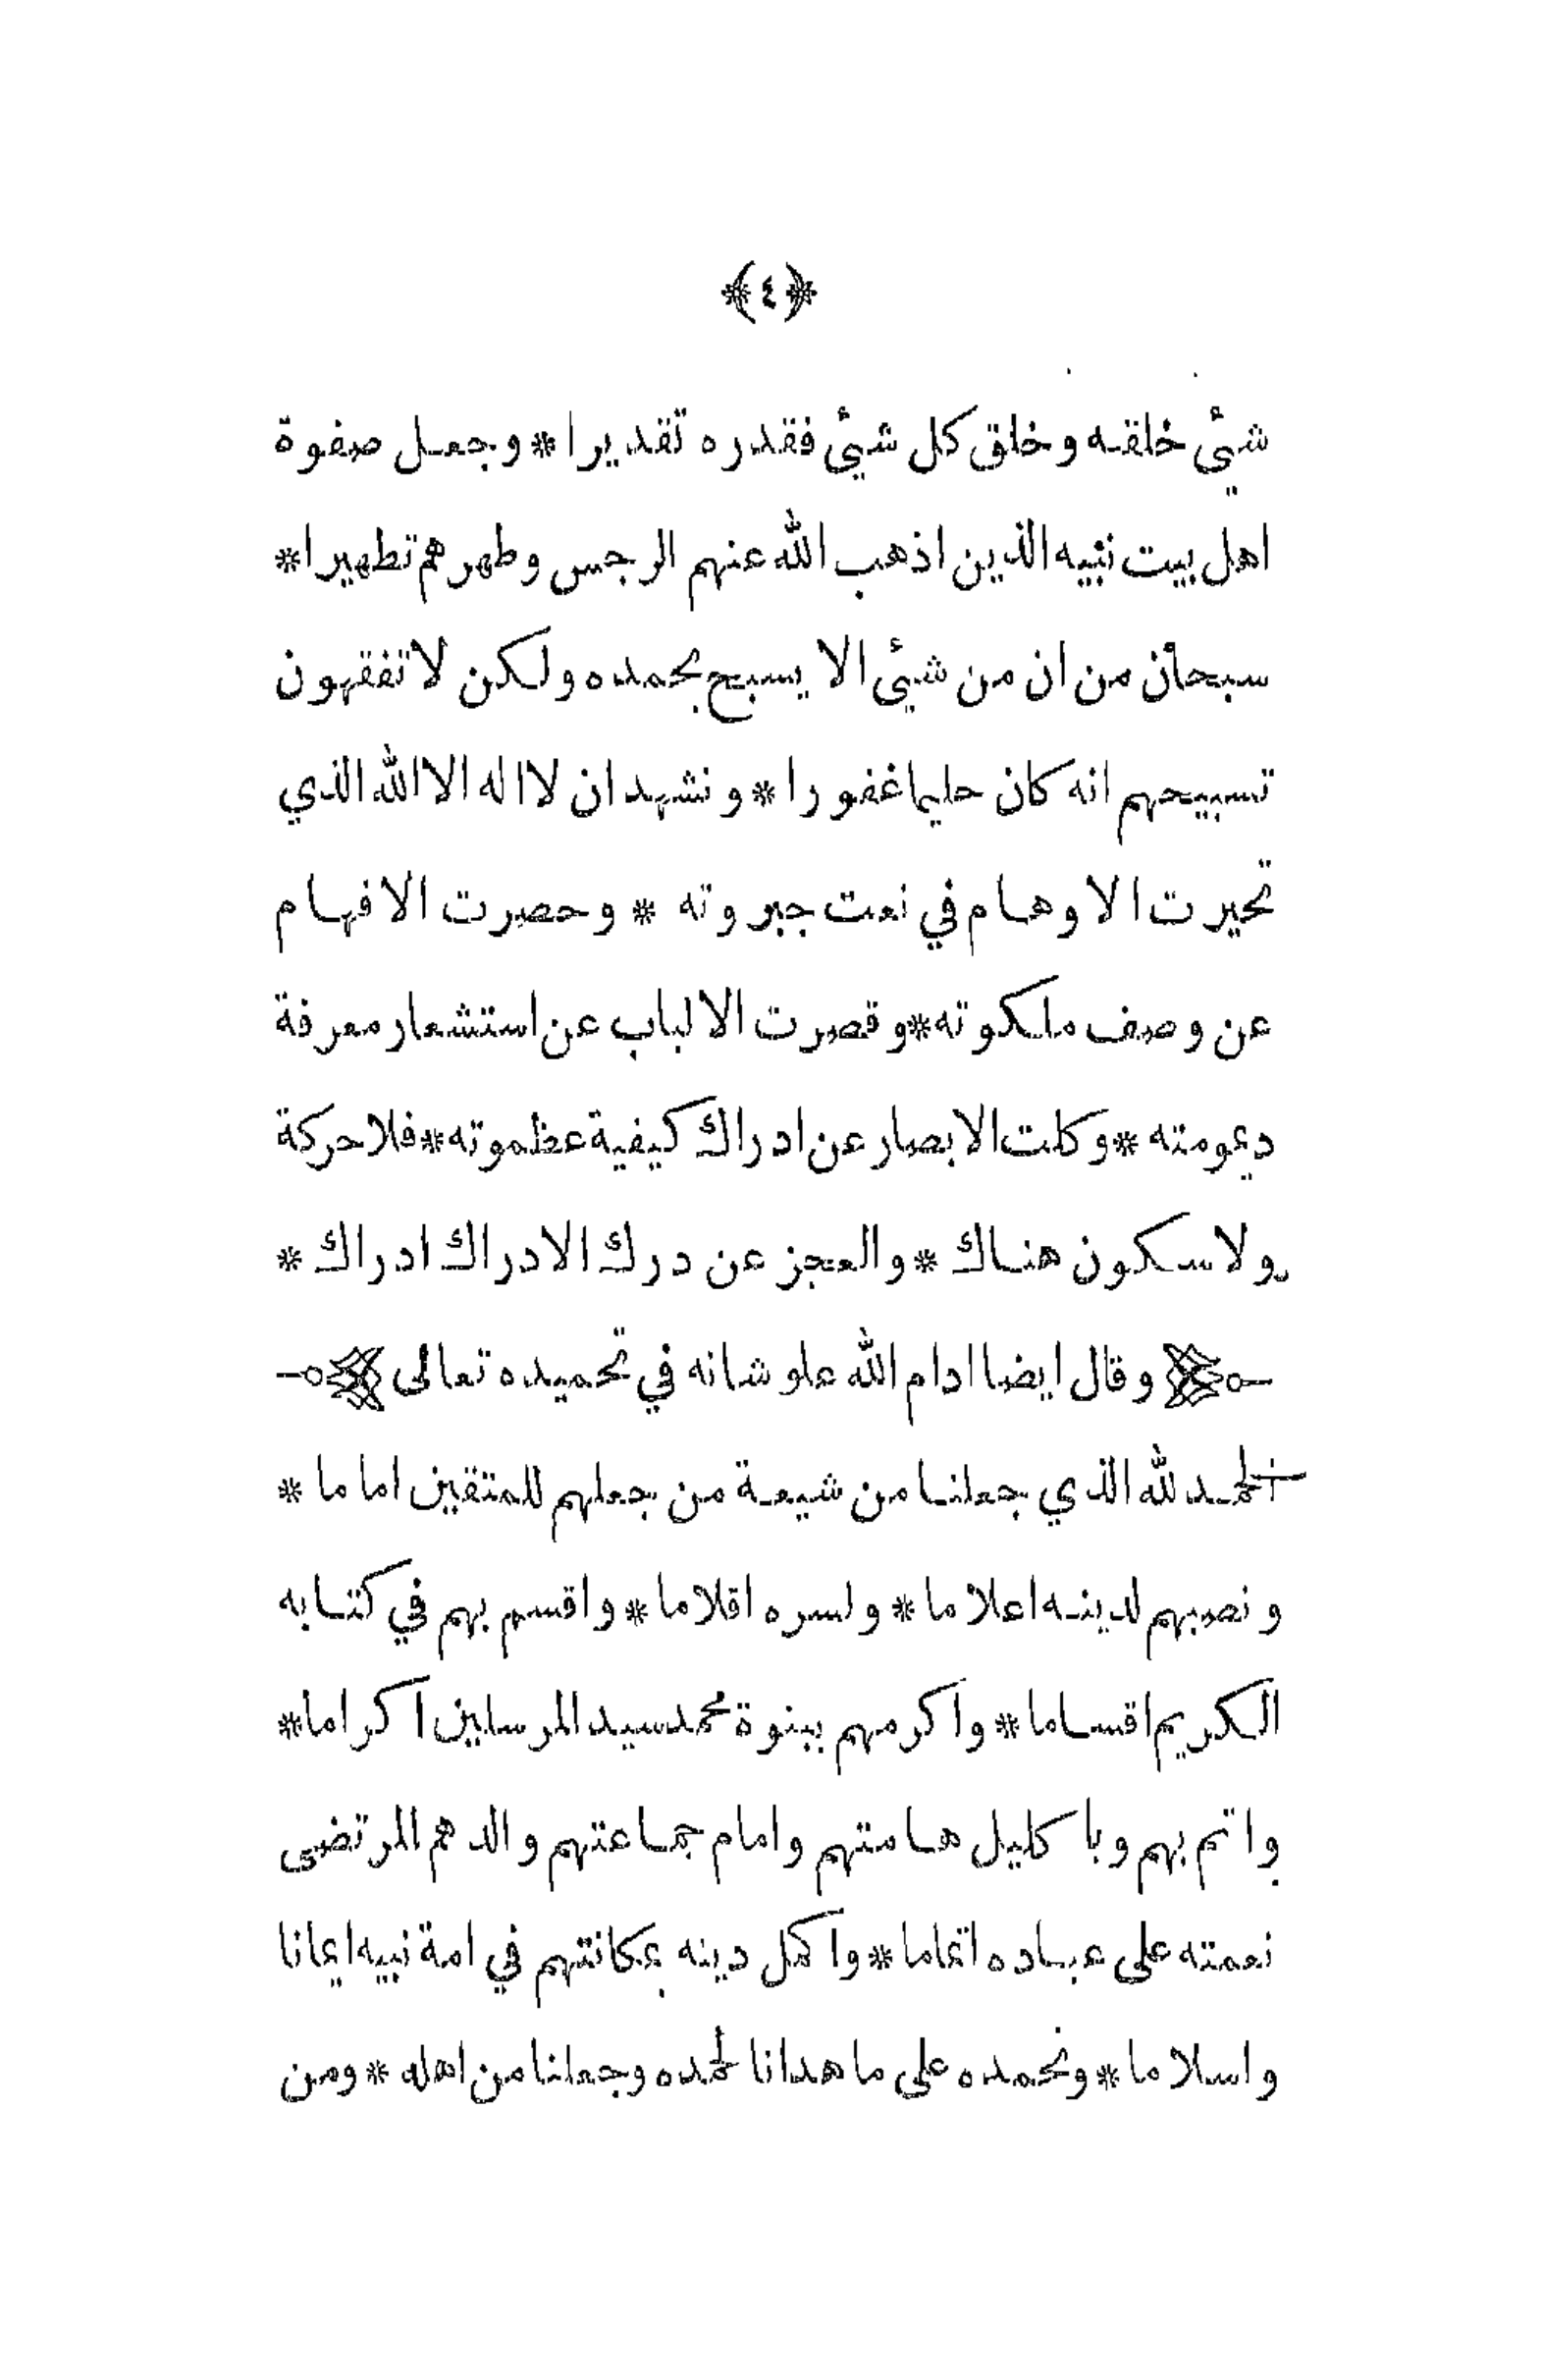 ﴿ ٤ ﴾
شيئ خلقه وخلق كل شيئ فقدره تقديرا * وجعل صفوة
اهل بيت نبيه الذين اذهب الله عنهم الرجس وطهرهم تطهيرا *
سبحان من ان من شيئ الا يسبح بحمده ولكن لا تفقهون
تسبيحهم انه كان حليما غفورا * ونشهد ان لا اله الا الله الذي
تحيرت الاوهام في نعت جبروته * وحصرت الافهام
عن وصف ملكوته * وقصرت الالباب عن استشعار معرفة
ديمومته * وكلت الابصار عن ادراك كيفية عظموته * فلا حركة
ولا سكون هناك * والعجز عن درك الادراك ادراك *
وقال ايضا ادام الله علو شانه في تحميده تعالى
الحمد لله الذي جعلنا من شيعة من جعلهم للمتقين اماما *
ونصبهم لدينه اعلاما * ولسره اقلاما * واقسم بهم في كتابه
الكريم اقساما * واكرمهم ببنوة محمد سيد المرسلين اكراما *
واتم بهم وباكليل هامتهم وامام جماعتهم والدهم المرتضى
نعمته على عباده اتماما * واكمل دينه بمكانتهم في امة نبيه ايمانا
واسلاما * ونحمده على ما هدانا لحمده وجعلنا من اهله * ومن